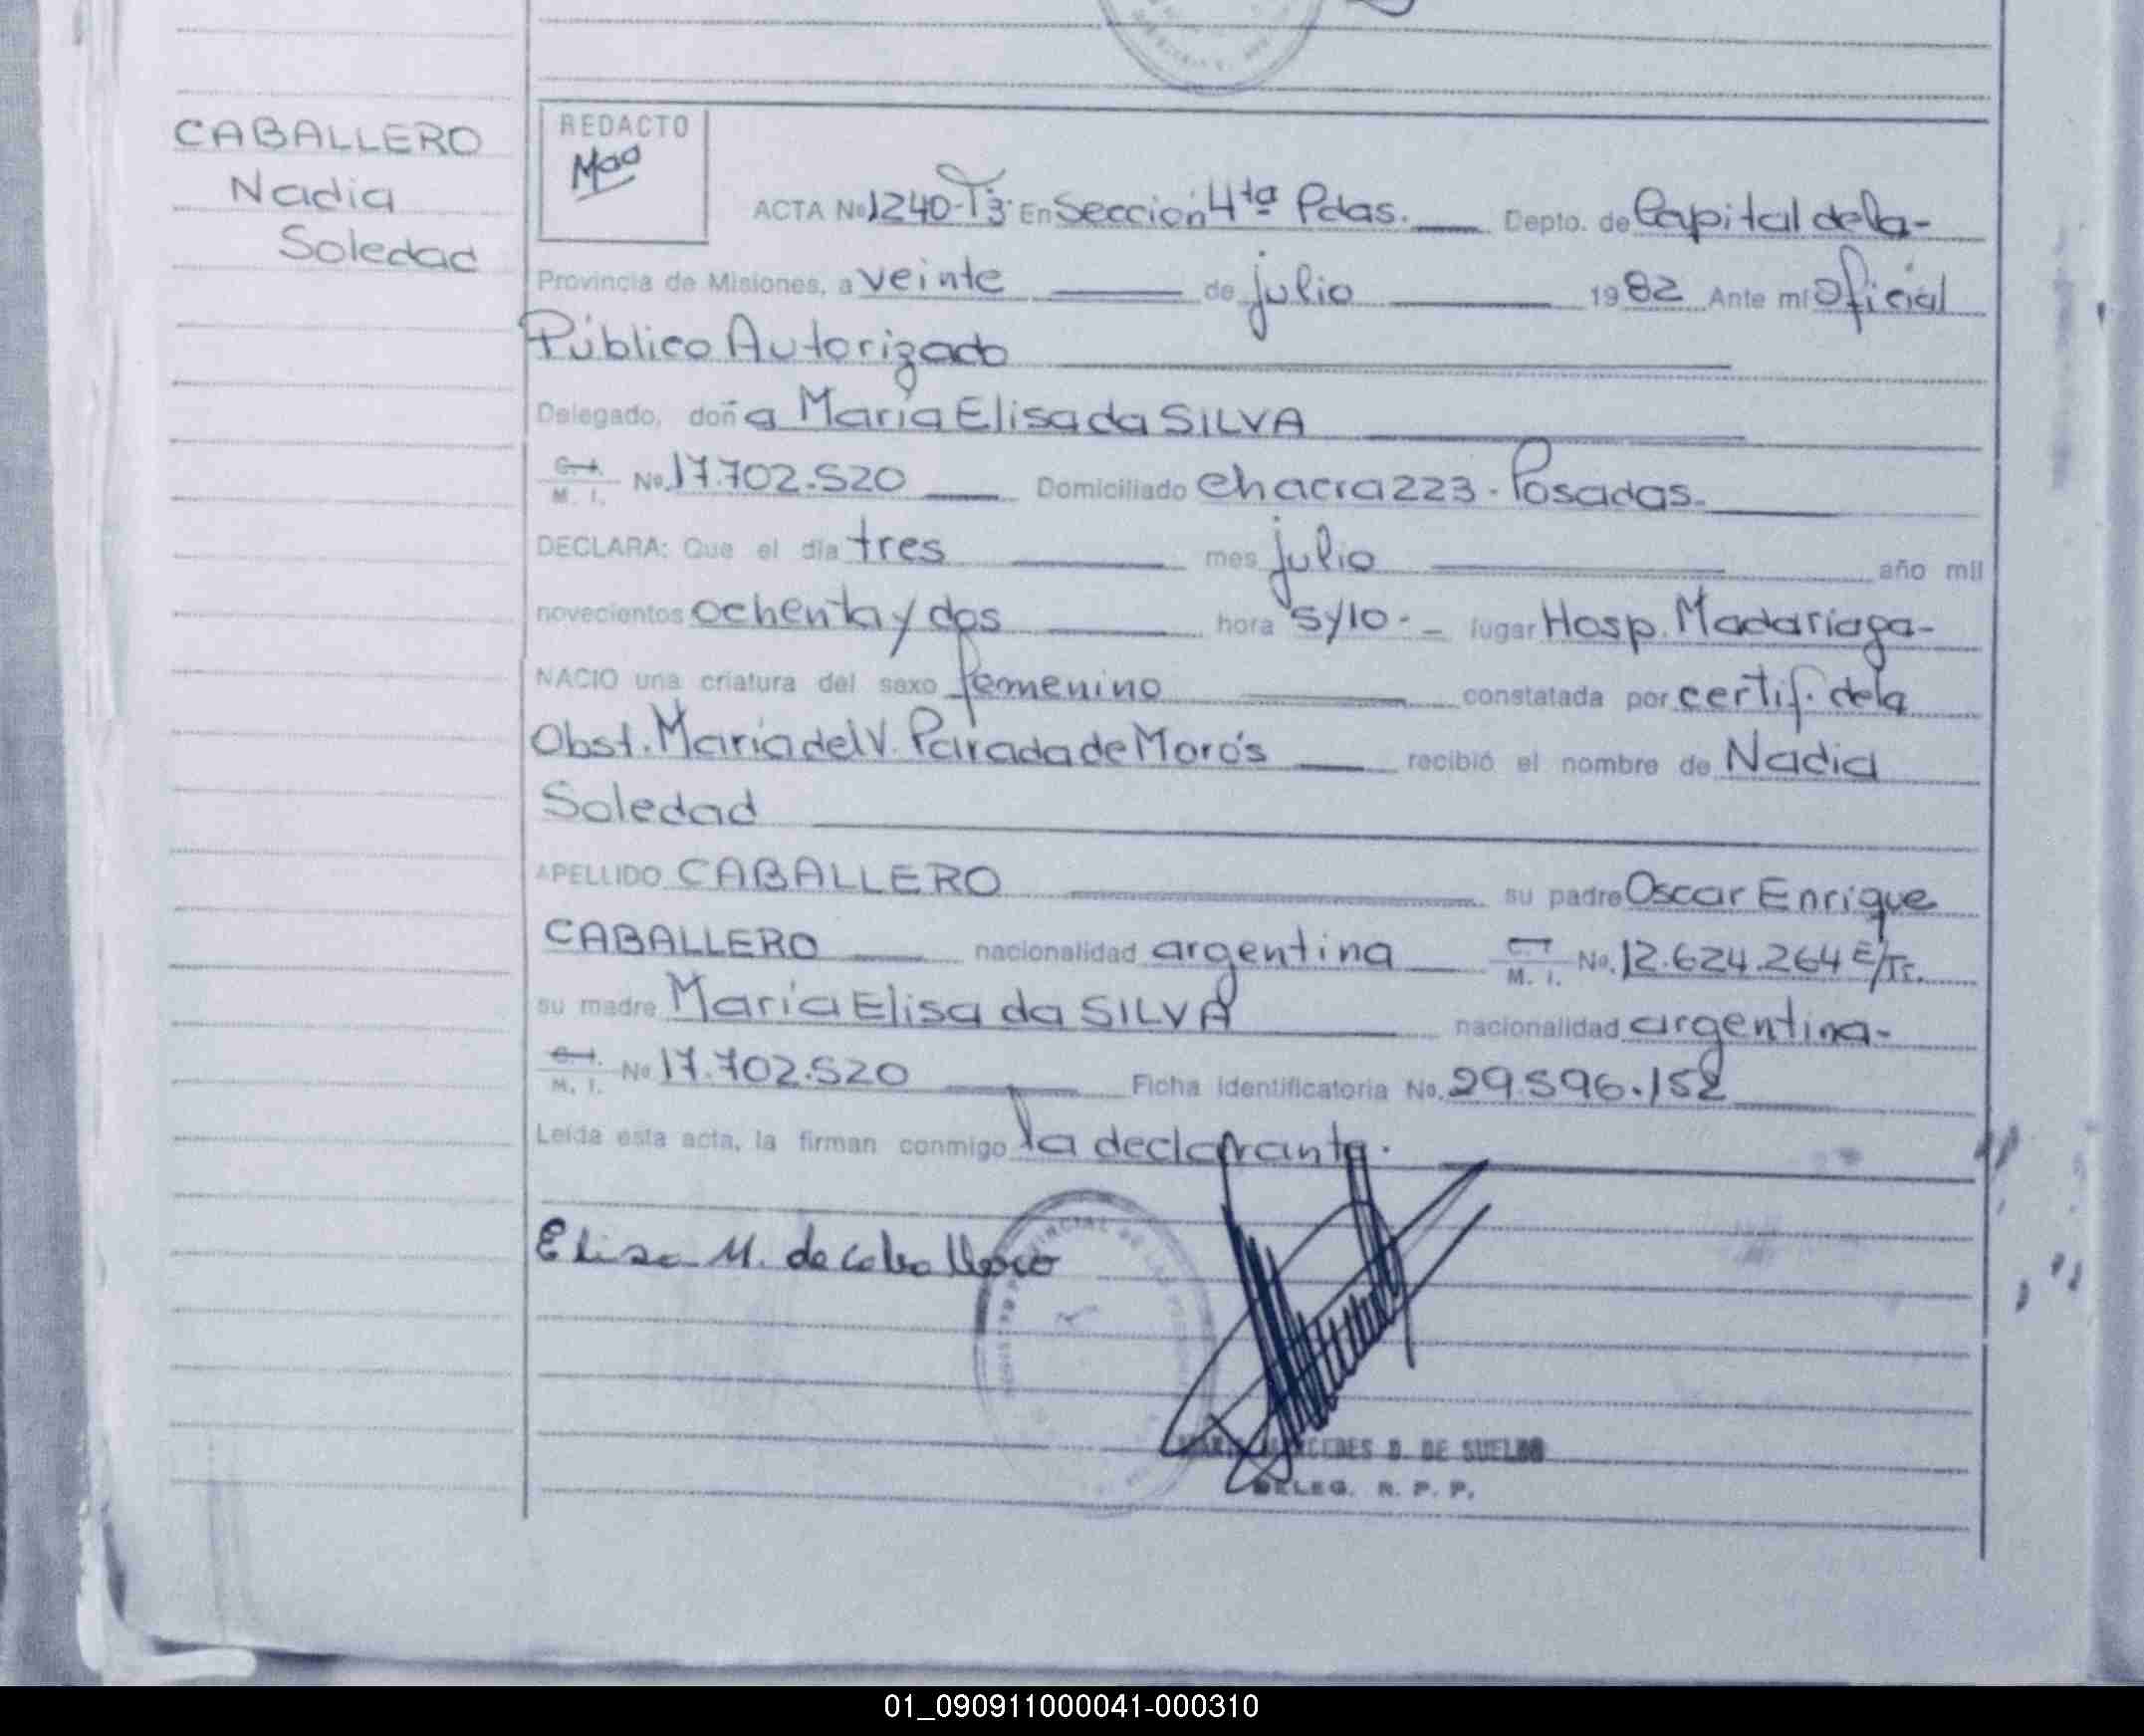 CABALLERO
Nadia
Soledad
REDACTO
ACTA Nº 1240-T3· En Sección 4ta Pdas. Depto. de Capital de la-
Provincia de Misiones, a veinte de julio 1982 Ante mí Oficial
Público Autorizado
Delegado, doña María Elisa da SILVA
C.I. M. I. Nº 17.702.520 Domiciliado chacra 223 - Posadas.
DECLARA: Que el día tres mes julio año mil
novecientos ochenta y dos hora 5y10·- lugar Hosp. Madariaga-
NACIO una criatura del sexo femenino constatada por certif. de la
Obst. María del V. Parada de Morós recibió el nombre de Nadia
Soledad
APELLIDO CABALLERO su padre Oscar Enrique
CABALLERO nacionalidad argentina C.I. M. I. Nº. 12.624.264 E/Tr.
su madre María Elisa da SILVA nacionalidad argentina-
C.I. M. I. Nº 17.702.520 Ficha identificatoria Nº. 29.596.152
Leída esta acta, la firman conmigo la declarante.
Elisa M. de Caballero
MERCEDES D. DE SUELDO
DELEG. R. P. P.
01_090911000041-000310